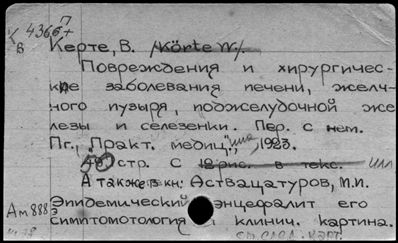 К 4366 П+
В Керте, В. /Körte W/.
Повреждения и хирургичес-
кие заболевания печени, желч-
ного пузыря, поджелудочной же
лезы и селезенки. Пер. с нем.
Пг., "Практ. медиц.", 1923.
40 стр. с 12 рис. в текс. илл
А также в кн: Аствацатуров, М.И.
Ам 888 Эпидемический энцефалит его
симптомотология и клинич. картина.
см. след. карт.